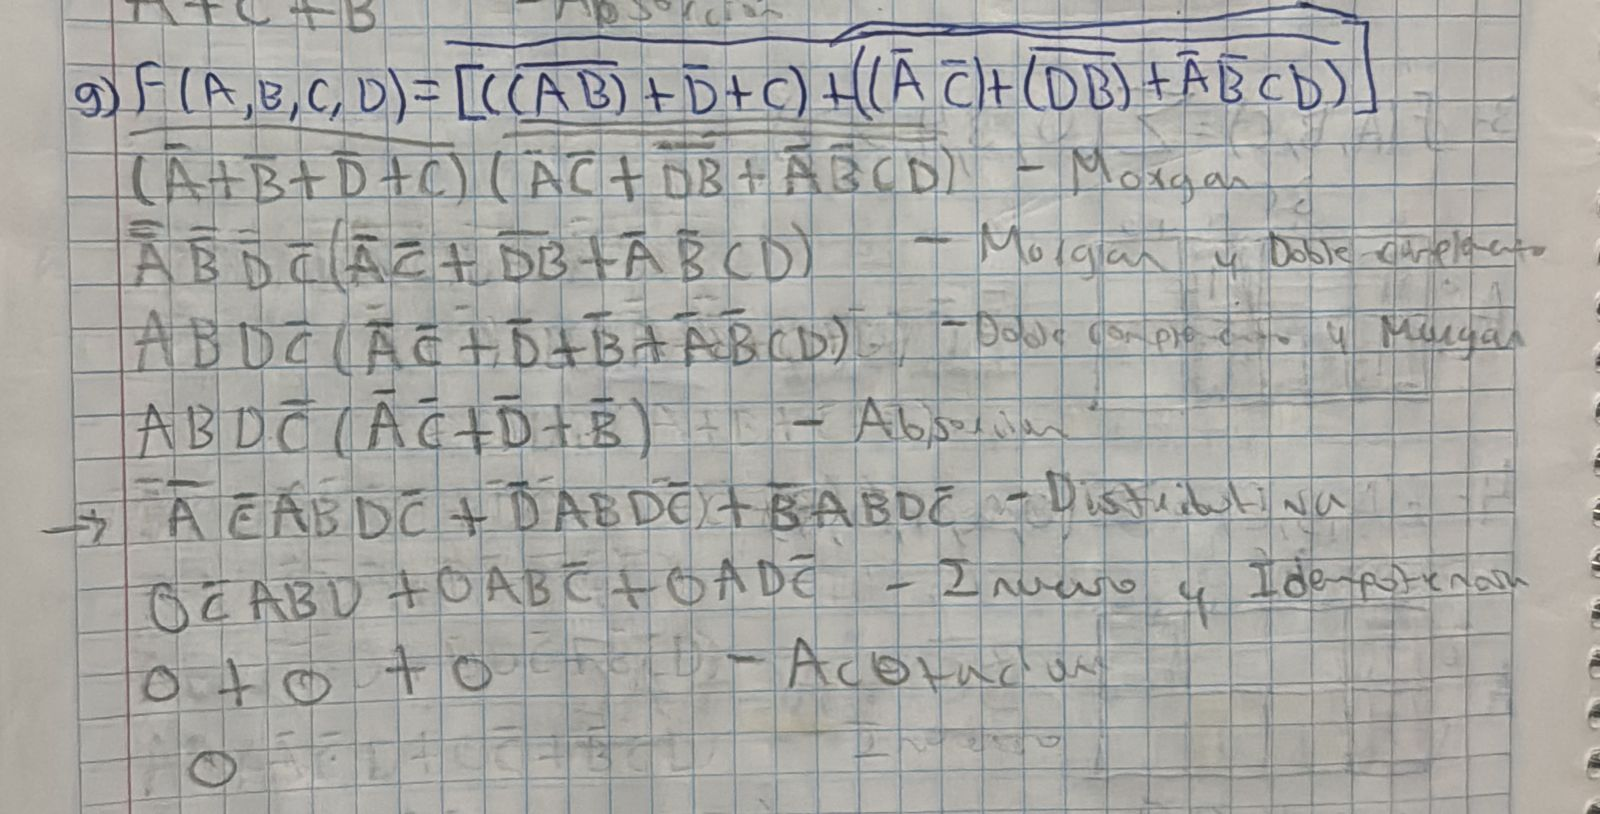 A + C + B - Absorción
g) F(A,B,C,D) = [((A̅B̅) + D̅ + C) + ((A̅ C̅) + (D̅B̅) + A̅ B̅ C D)]
(A̅ + B̅ + D̅ + C) (A̅C̅ + D̅B̅ + A̅ B̅ C D) - Morgan
A̿ B̿ D̿ C̅ (A̅ C̅ + D̅B̅ + A̅ B̅ C D) - Morgan y Doble
A B D C̅ (A̅ C̅ + D̅ + B̅ + A̅ B̅ C D) - Doble complemento y Morgan
A B D C̅ (A̅ C̅ + D̅ + B̅) - Absorcion
→ A̅ C̅ A B D C̅ + D̅ A B D C̅ + B̅ A B D C̅ - Distributiva
0 C̅ A B D + 0 A B C̅ + 0 A D C̅ - Inverso y Idempotencia
0 + 0 + 0 - Acotacion
0